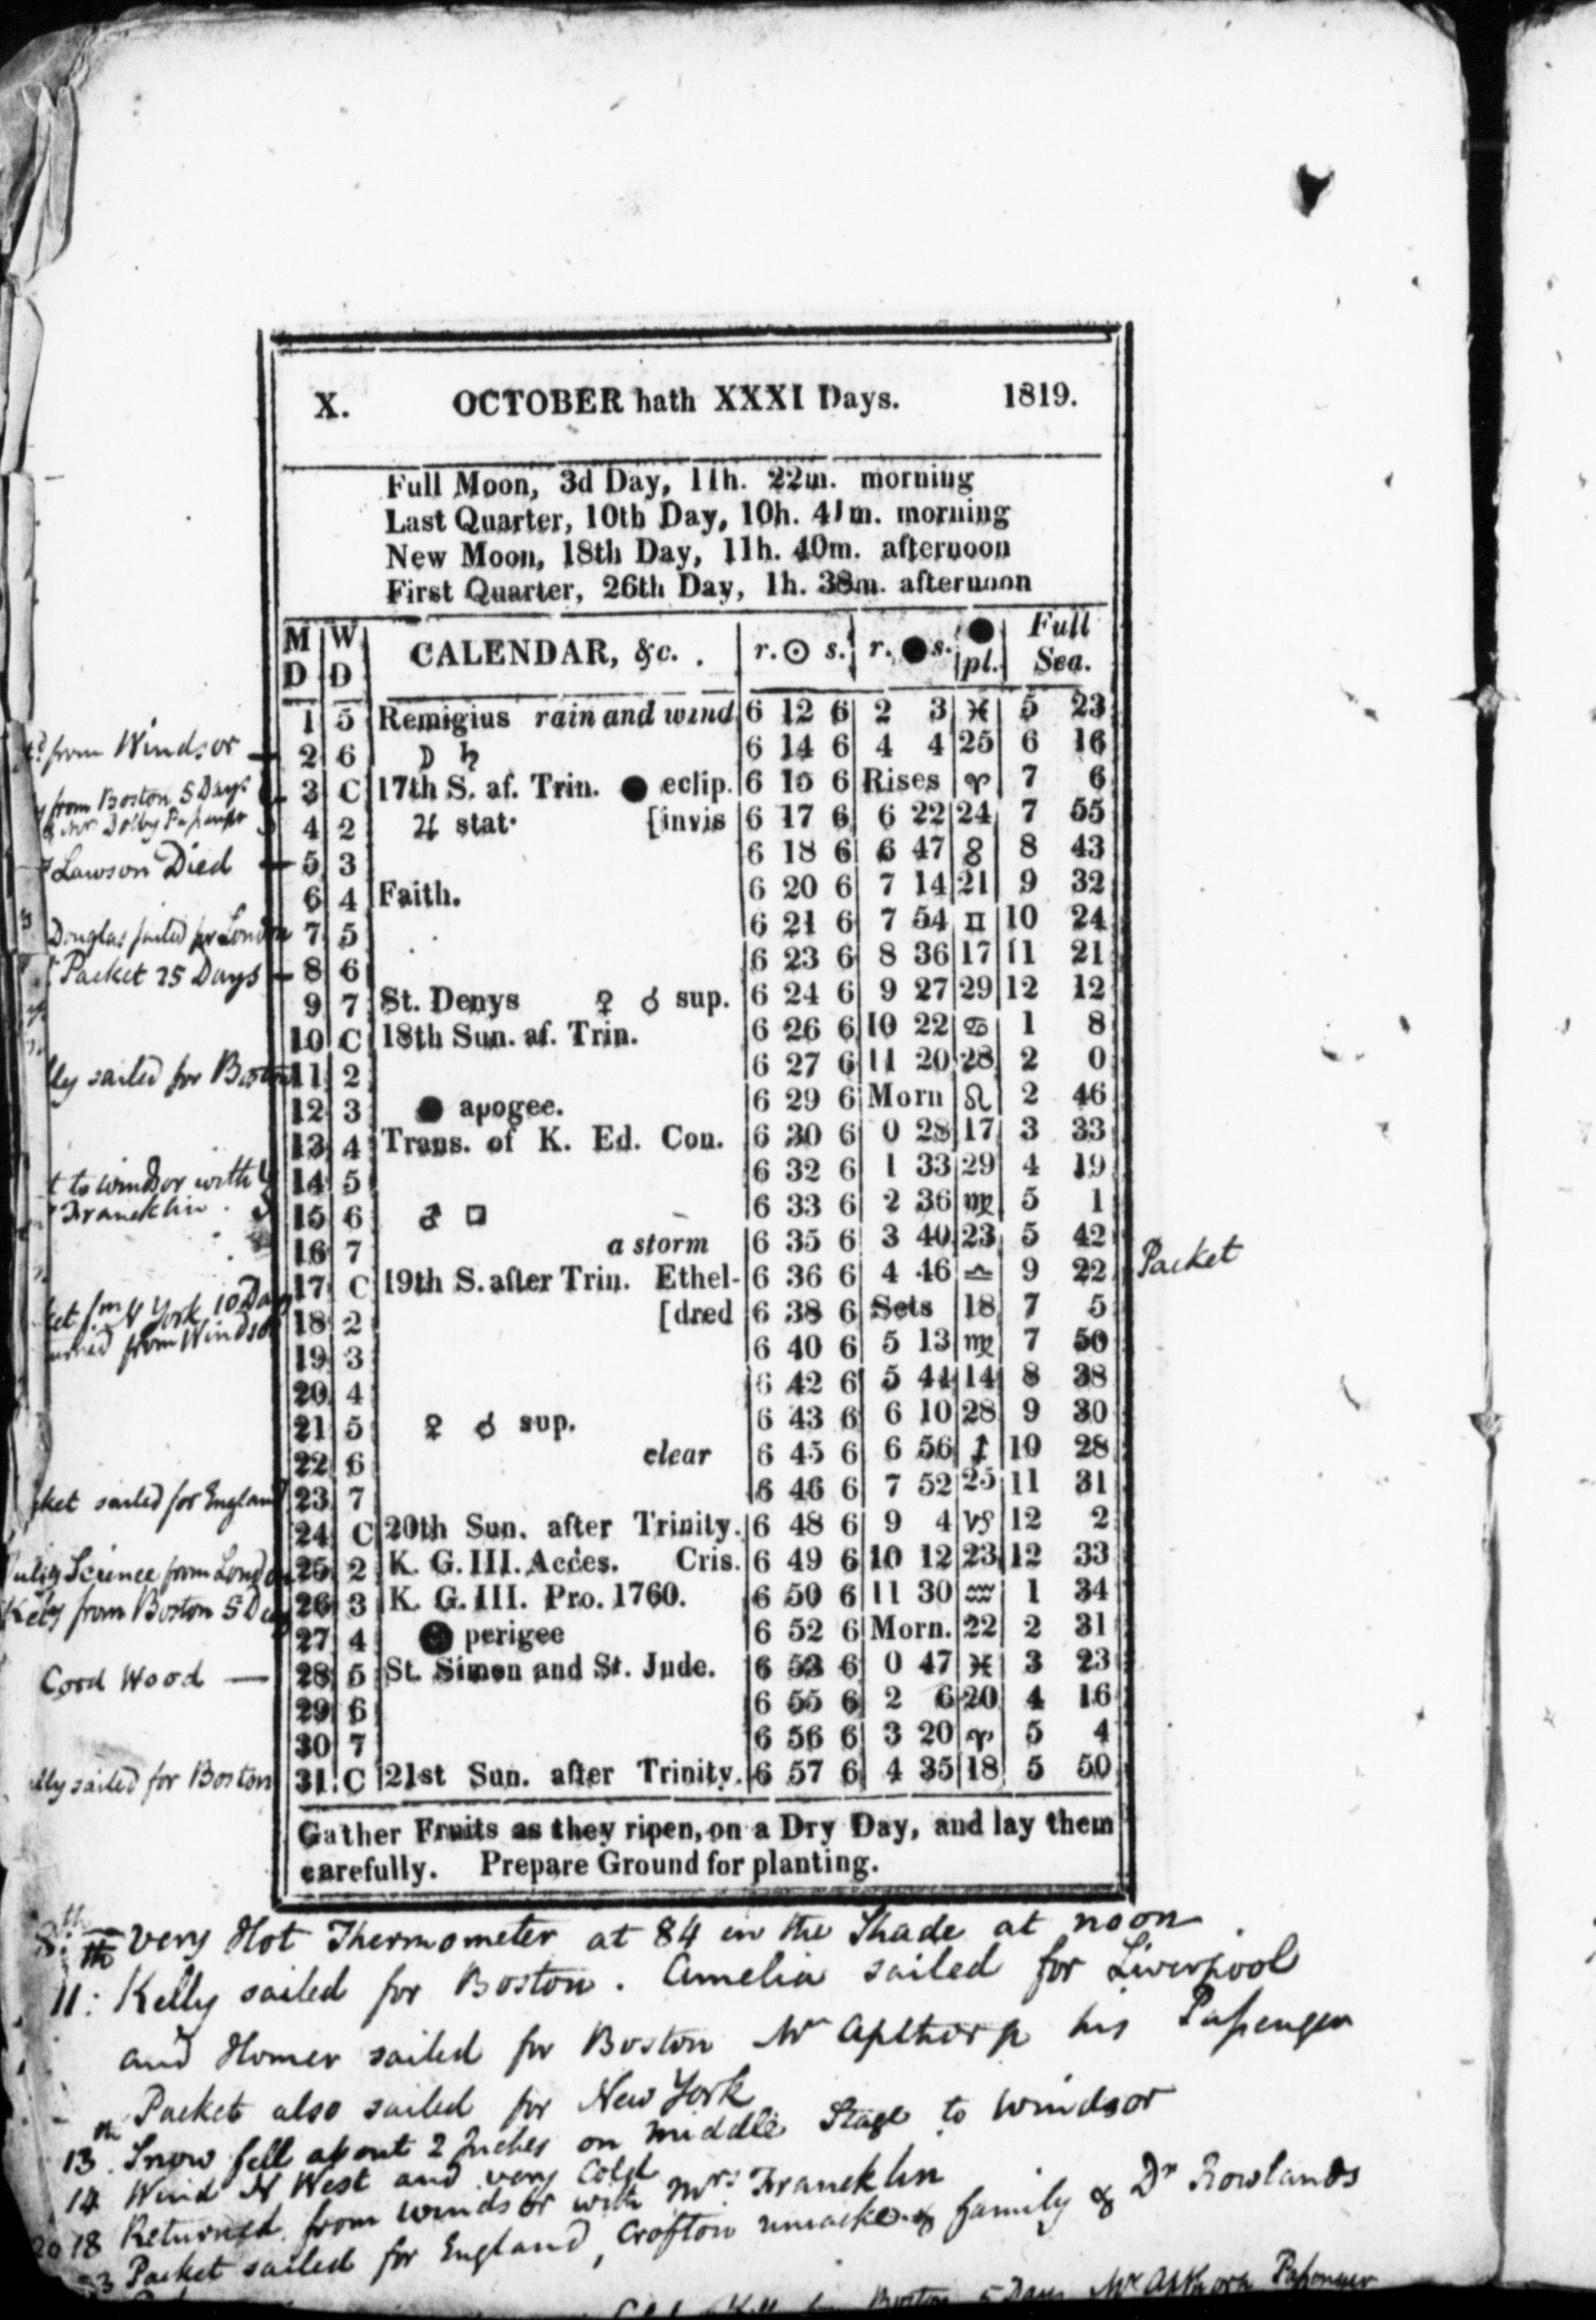 X. OCTOBER hath XXXI Days. 1819.
Full Moon, 3d Day, 11h. 22m. morning
Last Quarter, 10th Day, 10h. 41m. morning
New Moon, 18th Day, 11h. 40m. afternoon
First Quarter, 26th Day, 1h. 38m. afternoon
M D W D CALENDAR, &c. r. ☉ s. r. ● s. ● pl. Full Sea.
1 5 Remigius rain and wind 6 12 6 2 3 ♓ 5 23
from Windsor — 2 6 ☽ ♄ 6 14 6 4 4 25 6 16
from Boston 5 Days 3 C 17th S. af. Trin. ● eclip. 6 15 6 Rises ♈ 7 6
Mr Dolby Passenger 4 2 ♃ stat. [invis 6 17 6 6 22 24 7 55
Lawson Died — 5 3 6 18 6 6 47 ♉ 8 43
6 4 Faith. 6 20 6 7 14 21 9 32
Douglas sailed for London 7 5 6 21 6 7 54 ♊ 10 24
Packet 25 Days — 8 6 6 23 6 8 36 17 11 21
9 7 St. Denys ♀ ☌ sup. 6 24 6 9 27 29 12 12
10 C 18th Sun. af. Trin. 6 26 6 10 22 ♋ 1 8
sailed for Boston 11 2 6 27 6 11 20 28 2 0
12 3 ● apogee. 6 29 6 Morn ♌ 2 46
13 4 Trans. of K. Ed. Con. 6 30 6 0 28 17 3 33
to windsor with 14 5 6 32 6 1 33 29 4 19
Francklin. 15 6 ♂ □ 6 33 6 2 36 ♍ 5 1
16 7 a storm 6 35 6 3 40 23 5 42
17 C 19th S. after Trin. Ethel- 6 36 6 4 46 ♎ 9 22 Packet
fm N York 10 Days 18 2 [dred 6 38 6 Sets 18 7 5
from Windsor 19 3 6 40 6 5 13 ♏ 7 50
20 4 6 42 6 5 44 14 8 38
21 5 ♀ ☌ sup. 6 43 6 6 10 28 9 30
22 6 clear 6 45 6 6 56 ♐ 10 28
sailed for England 23 7 6 46 6 7 52 25 11 31
24 C 20th Sun. after Trinity. 6 48 6 9 4 ♑ 12 2
Science from London 25 2 K. G. III. Acces. Cris. 6 49 6 10 12 23 12 33
from Boston 5 Days 26 3 K. G. III. Pro. 1760. 6 50 6 11 30 ♒ 1 34
27 4 ● perigee 6 52 6 Morn. 22 2 31
Cord Wood — 28 5 St. Simon and St. Jude. 6 53 6 0 47 ♓ 3 23
29 6 6 55 6 2 6 20 4 16
30 7 6 56 6 3 20 ♈ 5 4
sailed for Boston 31 C 21st Sun. after Trinity. 6 57 6 4 35 18 5 50
Gather Fruits as they ripen, on a Dry Day, and lay them
carefully. Prepare Ground for planting.
8th very Hot Thermometer at 84 in the Shade at noon
11th: Kelly sailed for Boston. Amelia sailed for Liverpool
and Homer sailed for Boston Mr Aplthorp his Passenger
Packet also sailed for New York
13th Snow fell about 2 Inches on middle Stage to Windsor
14 Wind N West and very Cold
18 Returned from windsor with Mrs Francklin
Packet sailed for England, Crofton family & Dr Rowlands
Boston 5 Days Mr Passenger